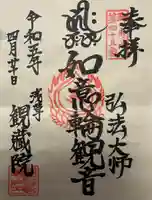 奉拝
弘法大師
如意輪観音
令和五年
四月廿日
観蔵院